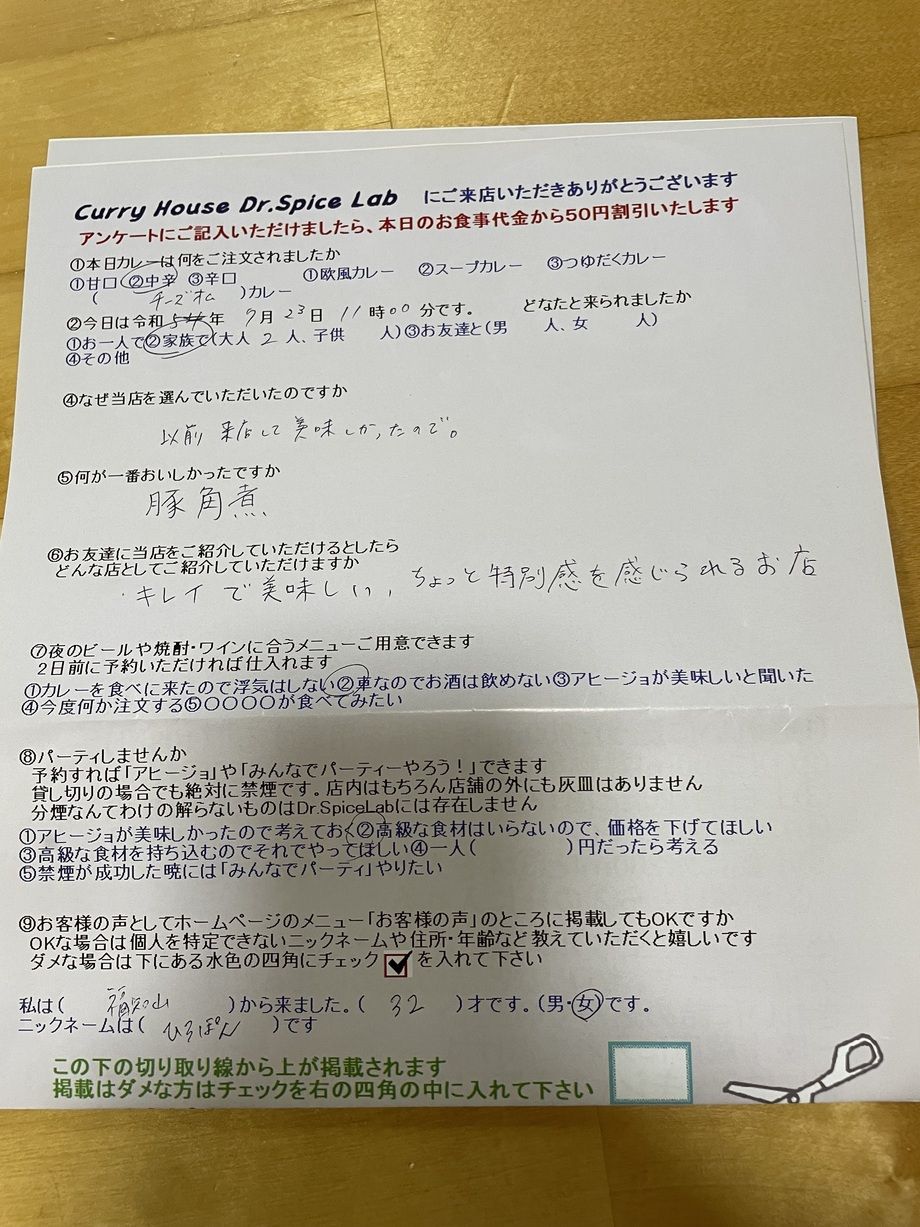 Curry House Dr.Spice Lab にご来店いただきありがとうございます
アンケートにご記入いただけましたら、本日のお食事代金から50円割引いたします
①本日カレーは何をご注文されましたか
①甘口 ②中辛 ③辛口 ①欧風カレー ②スープカレー ③つゆだくカレー
( チーズオム )カレー
②今日は令和 年 9月23日 11時00分です。 どなたと来られましたか
①お一人で②家族で(大人 2 人、子供 人)③お友達と(男 人、女 人)
④その他
④なぜ当店を選んでいただいたのですか
以前 来店して美味しかったので。
⑤何が一番おいしかったですか
豚角煮
⑥お友達に当店をご紹介していただけるとしたら
どんな店としてご紹介していただけますか
キレイで美味しい、ちょっと特別感を感じられるお店
⑦夜のビールや焼酎・ワインに合うメニューご用意できます
2日前に予約いただければ仕入れます
①カレーを食べに来たので浮気はしない②車なのでお酒は飲めない③アヒージョが美味しいと聞いた
④今度何か注文する⑤〇〇〇〇が食べてみたい
⑧パーティしませんか
予約すれば「アヒージョ」や「みんなでパーティーやろう!」できます
貸し切りの場合でも絶対に禁煙です。店内はもちろん店舗の外にも灰皿はありません
分煙なんてわけの解らないものはDr.SpiceLabには存在しません
①アヒージョが美味しかったので考えておく②高級な食材はいらないので、価格を下げてほしい
③高級な食材を持ち込むのでそれでやってほしい④一人( )円だったら考える
⑤禁煙が成功した暁には「みんなでパーティ」やりたい
⑨お客様の声としてホームページのメニュー「お客様の声」のところに掲載してもOKですか
OKな場合は個人を特定できないニックネームや住所・年齢など教えていただくと嬉しいです
ダメな場合は下にある水色の四角にチェック を入れて下さい
私は( 福知山 )から来ました。( 32 )才です。(男・女)です。
ニックネームは( ひろぽん )です
この下の切り取り線から上が掲載されます
掲載はダメな方はチェックを右の四角の中に入れて下さい